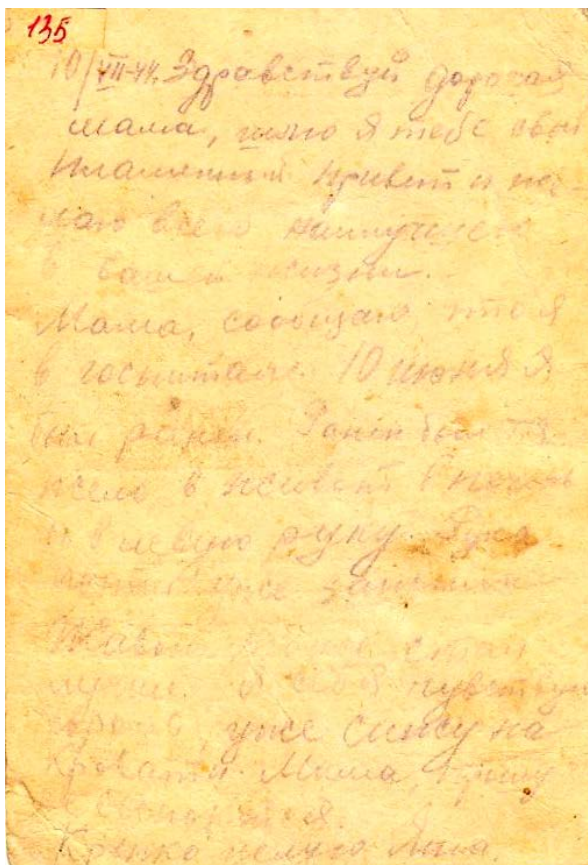 135
10/VII-44. Здравствуй дорогая
мама, шлю я тебе свой
пламенный привет и же-
лаю всего наилучшего
в вашей жизни.
Мама, сообщаю, что я
в госпитале. 10 июня я
был ранен. Ранен был тя-
жело в живот в печень
и в левую руку. Рука
уже
стал
лучше. я себя чувствую
хорошо, уже сижу на
кровати. Мама, прошу
Крепко целую